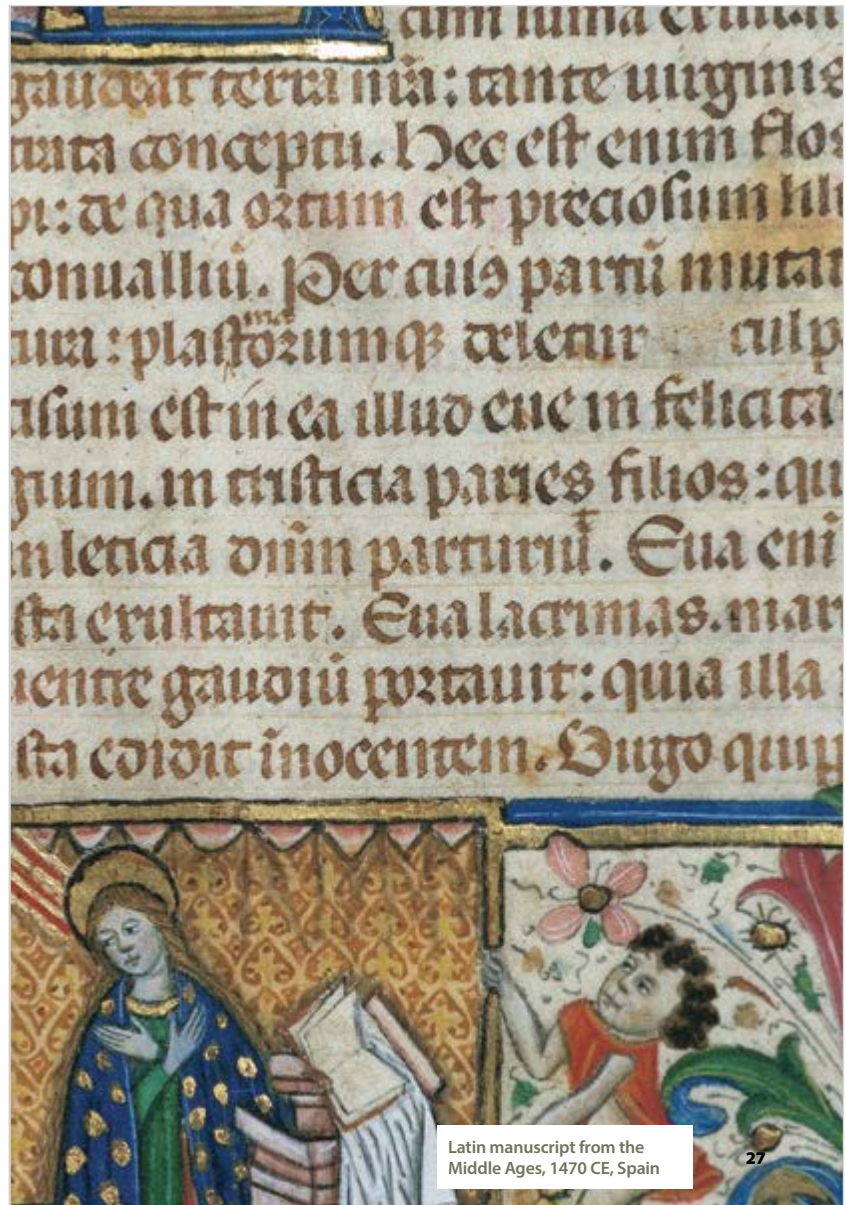 cum summa exultat
gaudeat terra nr̃a: tante uirginis
trata conceptu. Hec est enim flos
pi: de qua ortum est preciosum lili
conualliũ. Per cuiꝰ partũ mutat
tura: plastorumqꝫ deletur culp
ma
isum est in ea illud eue in felicita
gium. in tristicia paries filios: qu
in leticia dñm parturiuĩt. Eua enĩ
sta exultauit. Eua lacrimas. mar
uentre gaudiũ portauit: quia illa
sta edidit ĩnocentem. Uirgo quip
Latin manuscript from the
Middle Ages, 1470 CE, Spain
27